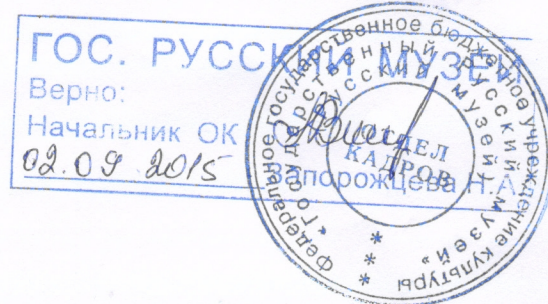 ГОС. РУССКИЙ МУЗЕЙ
Верно:
Начальник ОК
02.09.2015
Запорожцева Н.А.
Федеральное государственное бюджетное учреждение культуры
"Государственный русский музей"
(Русский музей)
ОТДЕЛ
КАДРОВ
* * *